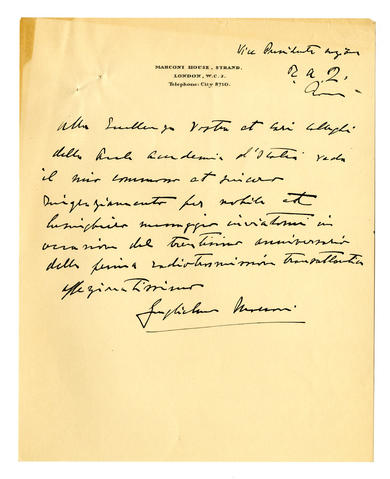 Vice Presidente
MARCONI HOUSE, STRAND,
LONDON, W.C. 2.
Telephone: City 8710.
Alla Eccellenza Vostra et cari colleghi
della Reale Accademia d'Italia vada
il mio commosso et sincero
ringraziamento per nobile et
lusinghiero messaggio inviatomi in
occasione del trentesimo anniversario
della prima radiotrasmissione transatlantica
affezionatissimo
Guglielmo Marconi